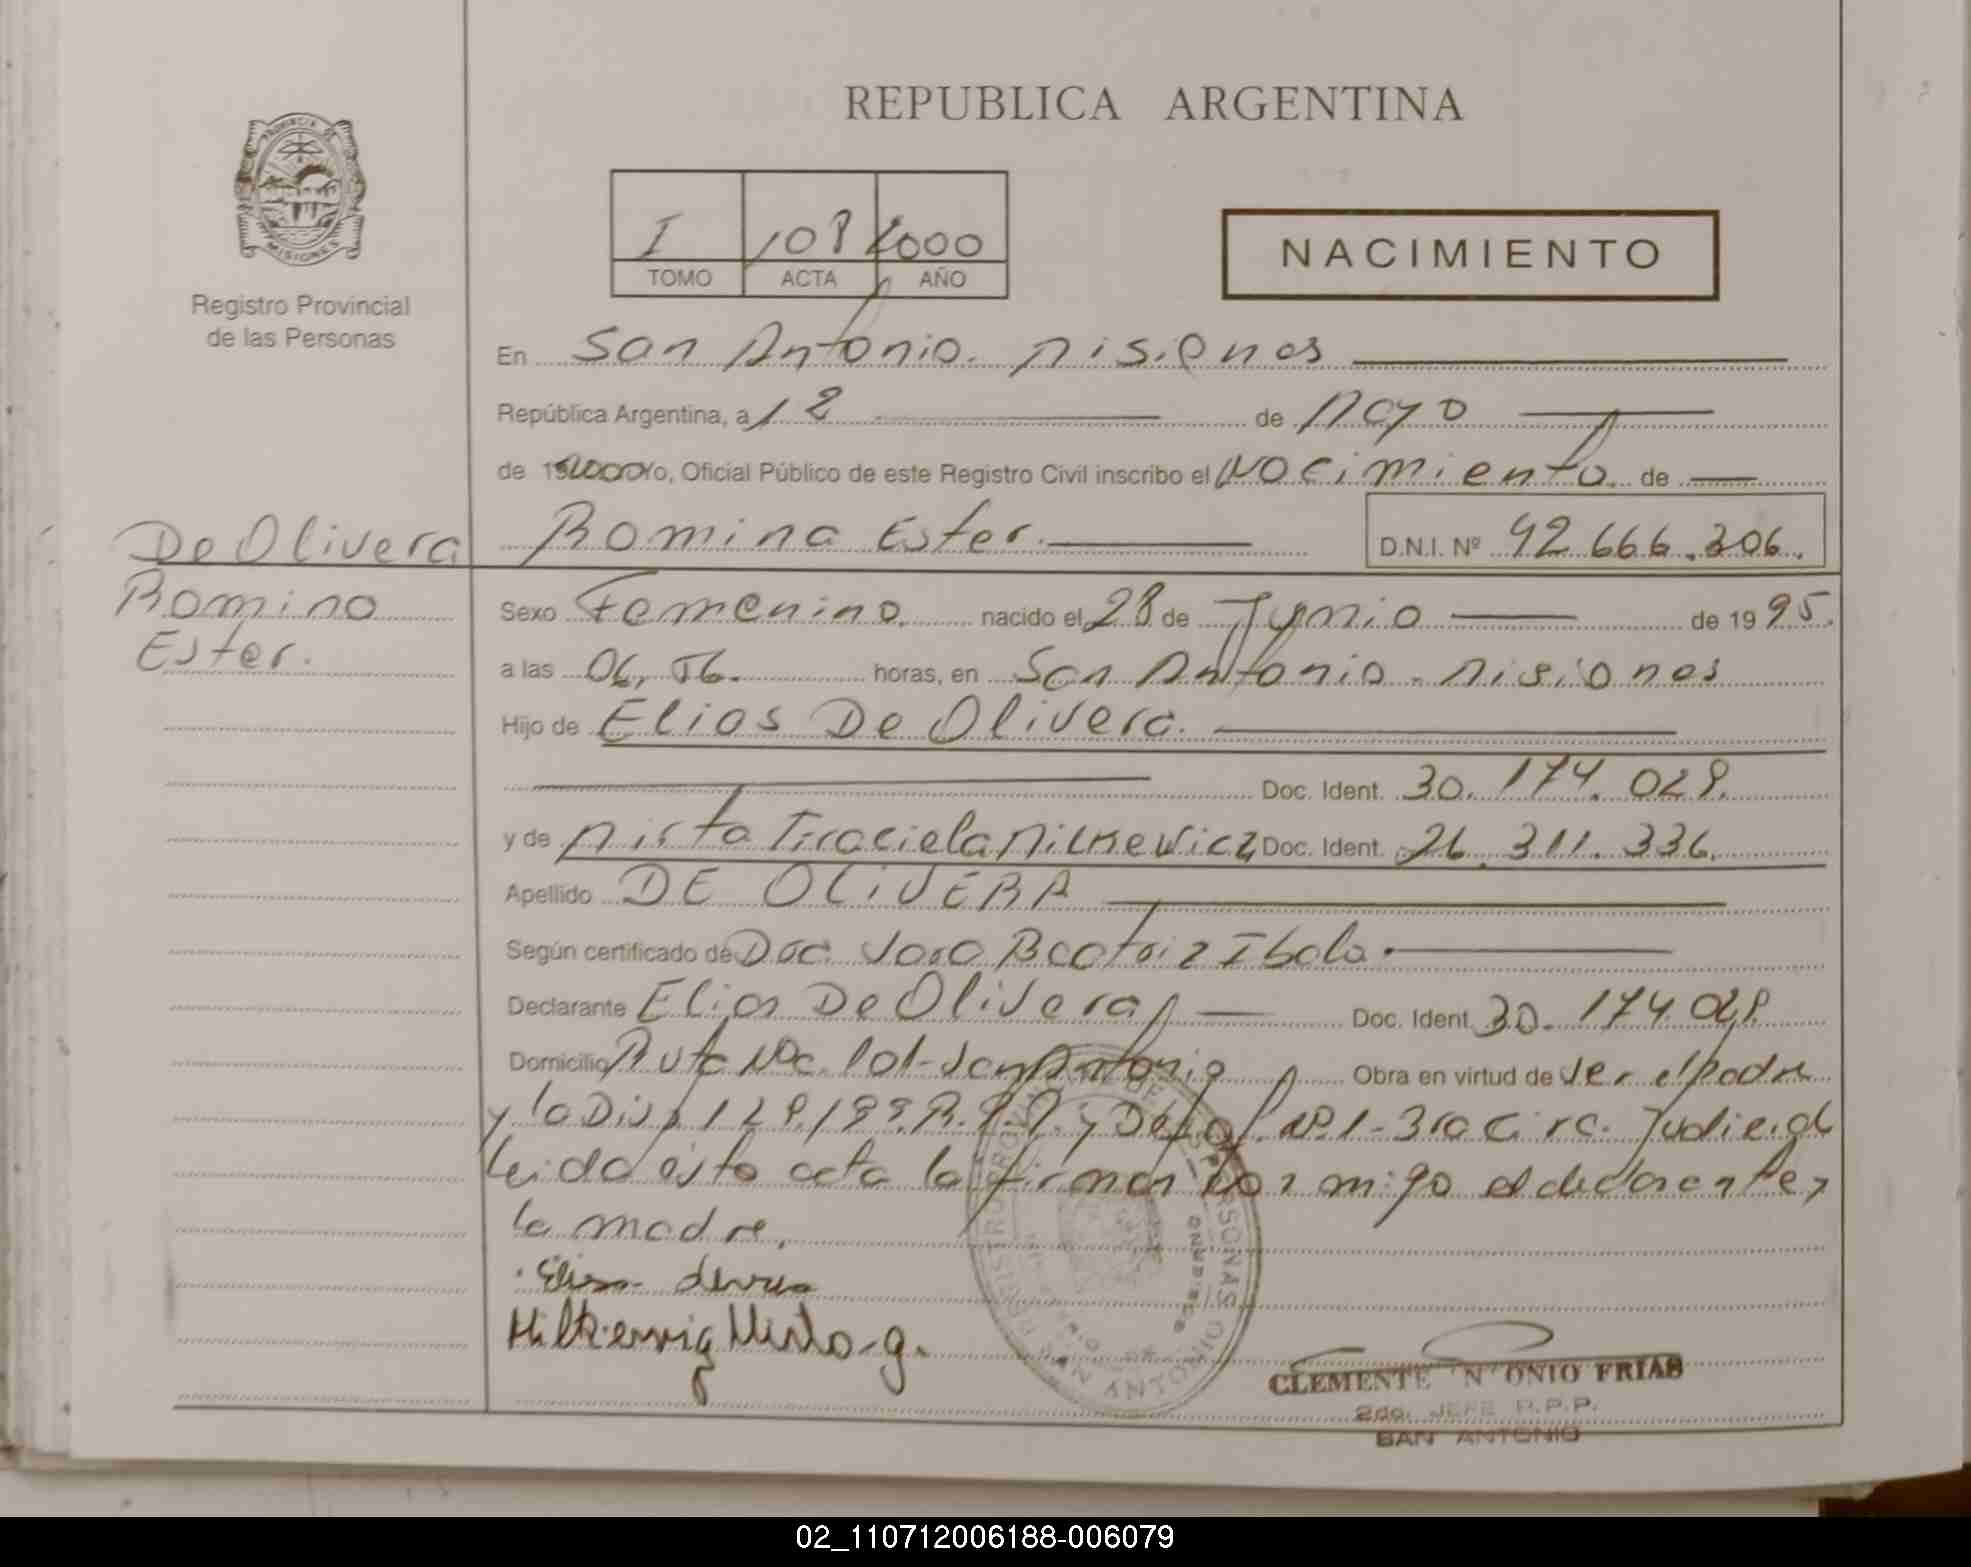 REPUBLICA ARGENTINA
PROVINCIA DE
MISIONES
Registro Provincial
de las Personas
I 108 2000
TOMO ACTA AÑO
NACIMIENTO
En San Antonio. Misiones
República Argentina, a 12 de Mayo
de 2000 Yo, Oficial Público de este Registro Civil inscribo el Nacimiento de
De Olivera Romina Ester. D.N.I. Nº 42.666.306.
Romina
Ester.
Sexo Femenino. nacido el 28 de Junio de 1995.
a las 06,56. horas, en San Antonio. Misiones
Hijo de Elias De Olivera.
Doc. Ident. 30.174.028.
y de Mirta Graciela Milkevicz Doc. Ident. 26.311.336.
Apellido DE OLiVERA
Según certificado de Doc. Beatriz
Declarante Elias De Olivera Doc. Ident. 30.174.028
Domicilio Ruta Nac. 101-San Antonio Obra en virtud de ser el padre
y la Disp. 128/99. R.P.P. y Nº1-3ra Circ. Judicial
leida esta acta la firman conmigo el declarante y
la madre.
Milkewig Mirta-g.
SAN ANTONIO
CLEMENTE FRIAS
2do. JEFE R.P.P.
SAN ANTONIO
02_110712006188-006079